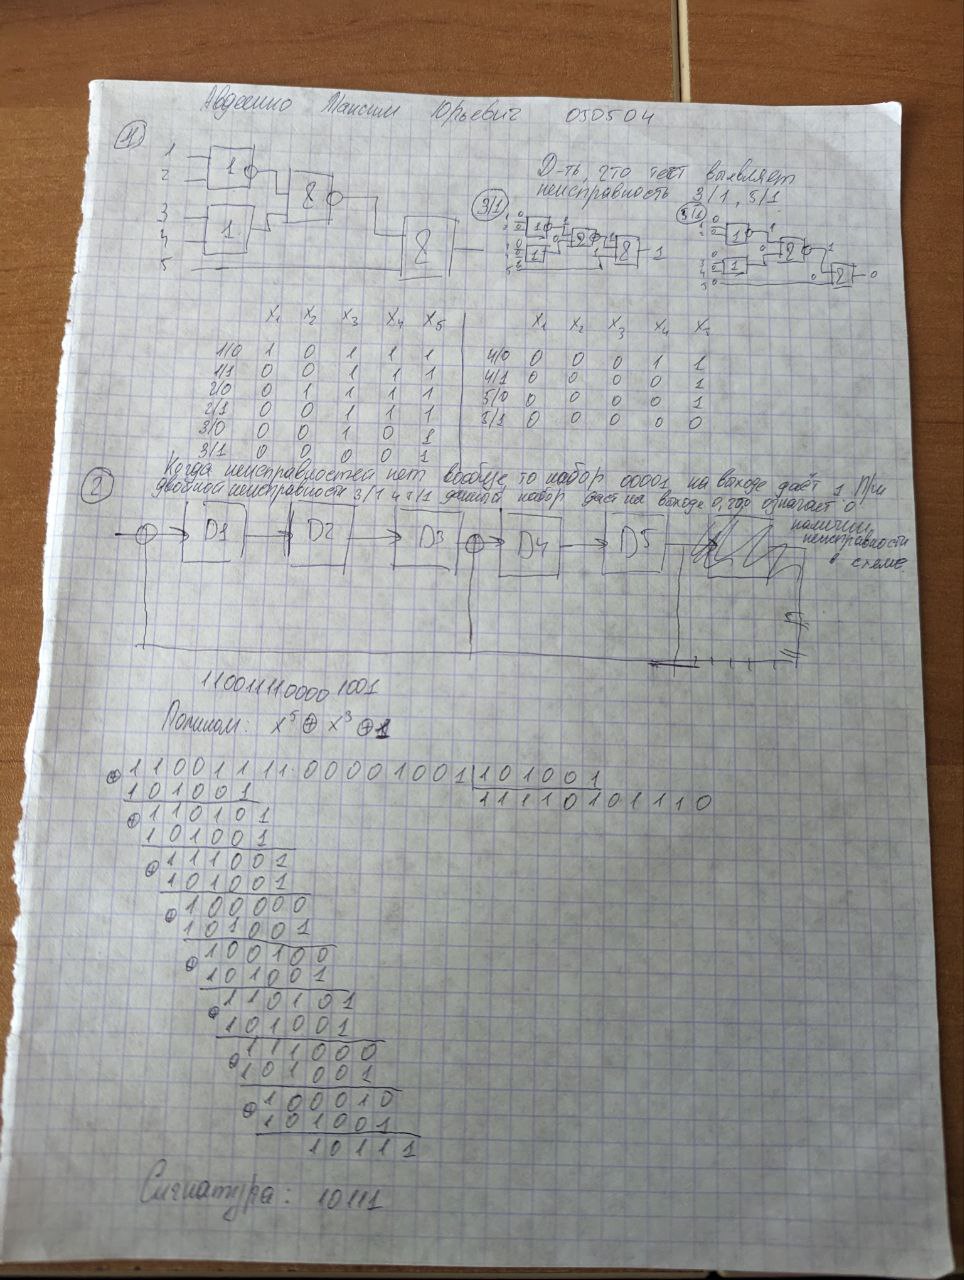 Авдеенко Максим Юрьевич 050504
1
Д-ть, что тест выявляет
неисправность 3/1, 5/1
1
2
3
4
5
1
1
&
&
3/1
5/1
x1 x2 x3 x4 x5
x1 x2 x3 x4 x5
1/0 1 0 1 1 1
1/1 0 0 1 1 1
2/0 0 1 1 1 1
2/1 0 0 1 1 1
3/0 0 0 1 0 1
3/1 0 0 0 0 1
4/0 0 0 0 1 1
4/1 0 0 0 0 1
5/0 0 0 0 0 1
5/1 0 0 0 0 0
Когда неисправностей нет вообще то набор 00001 на выходе даёт 1 При
двойной неисправности 3/1 и 5/1 данный набор даст на выходе 0, что означает о
наличии
неисправности
в схеме.
2
D1 D2 D3 D4 D5
1100111100001001
Полином: x^5 ⊕ x^3 ⊕ 1
1100111100001001 101001
101001 11110101110
110101
101001
111001
101001
100000
101001
100100
101001
110101
101001
111000
101001
100010
101001
10111
Сигнатура: 10111